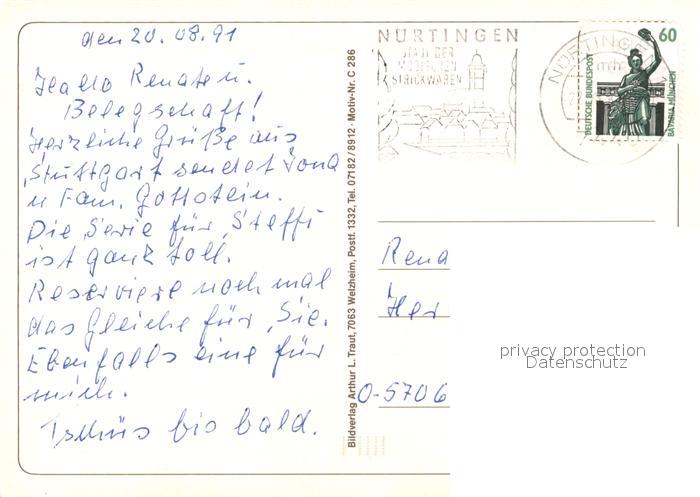 den 20.08.91
Hallo Renate u.
Belegschaft!
Herzliche Grüße aus
Stuttgart sendet Jona
u Fam. Gottstein.
Die Serie für Steffi
ist ganz toll.
Reserviere noch mal
das Gleiche für Sie.
Ebenfalls eine für
mich.
Tschüs bis bald.
Bildverlag Arthur L. Traut, 7063 Welzheim, Postf. 1332, Tel. 07182/8912 · Motiv-Nr. C 286
NÜRTINGEN
STADT DER
MODISCHEN
STRICKWAREN
NÜRTINGEN
60
DEUTSCHE BUNDESPOST
BAVARIA MÜNCHEN
Rena
Her
O-5706
privacy protection
Datenschutz